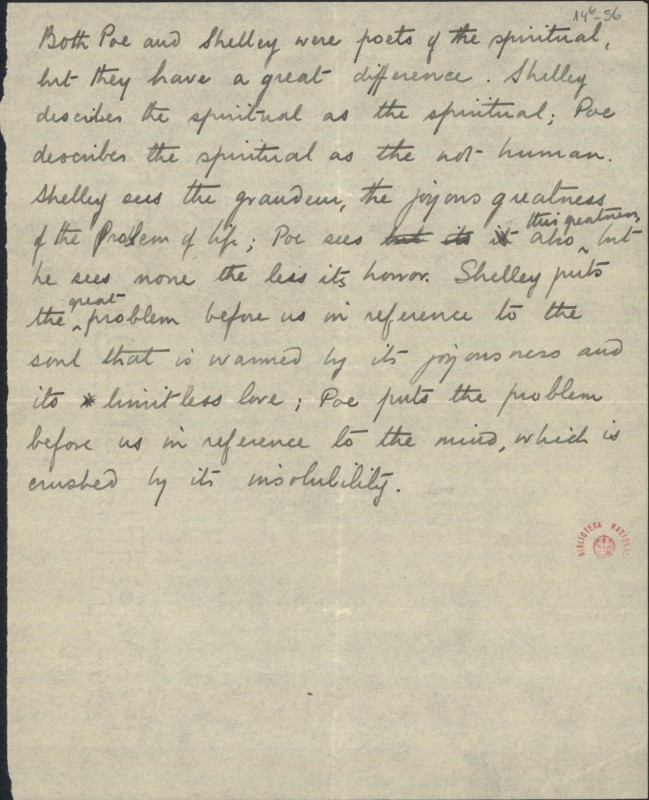 14⁶-56
Both Poe and Shelley were poets of the spiritual,
but they have a great difference. Shelley
describes the spiritual as the spiritual; Poe
describes the spiritual as the not human.
Shelley sees the grandeur, the joyous greatness
of the Problem of life; Poe sees but its it also this greatness, but
he sees none the less its horror. Shelley puts
the great problem before us in reference to the
soul that is warmed by its joyousness and
its limitless love; Poe puts the problem
before us in reference to the mind, which is
crushed by its insolubility.
BIBLIOTECA NACIONAL